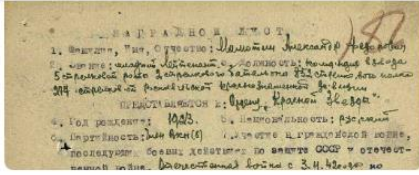 НАГРАДНОЙ ЛИСТ
1. Фамилия, имя, отчество: Мамотин Александр Федорович
2. Звание: младший лейтенант 3. Должность: командир взвода
5 стрелковой роты 2 стрелкового батальона 852 стрелкового полка
277 стрелковой краснознаменной дивизии
ПРЕДСТАВЛЯЕТСЯ к Ордену "Красной Звезды"
4. Год рождения: 1923 5. Национальность: русский
6. Партийность: член ВКП(б) 7. Участие в гражданской войне,
последующих боевых действиях по защите СССР и отечест-
венной войне. Отечественная война с 3.11.42 года по